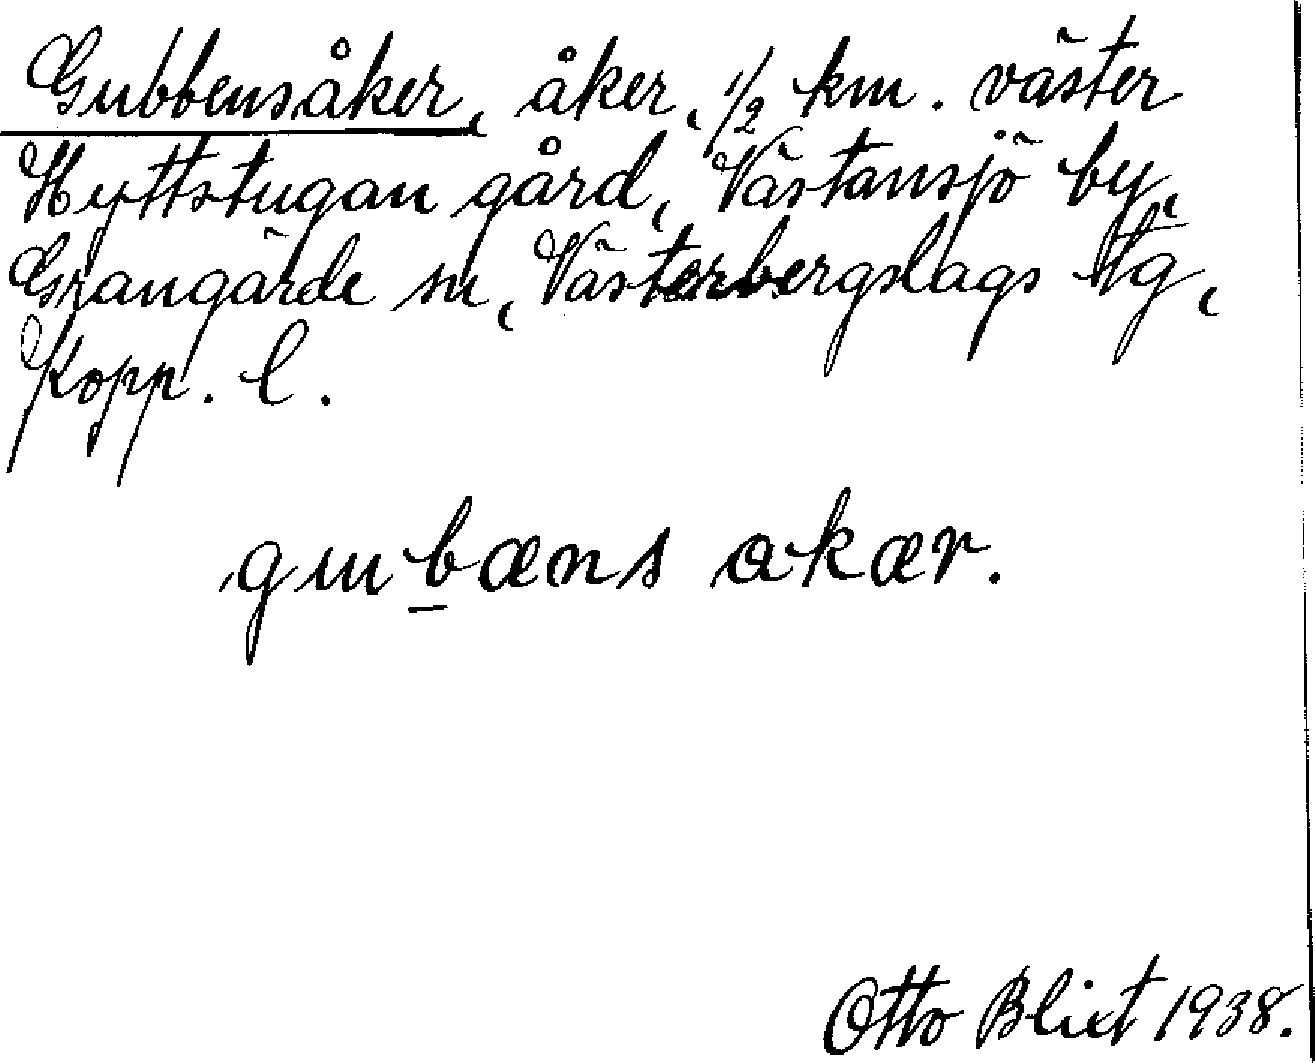 Gubbensåker, åker, 1/2 km. väster
Hyttstugan gård, Västansjö by,
Grangärde sn, Västerbergslags tg,
Kopp. l.
gubæns akær.
Otto Blixt 1938.